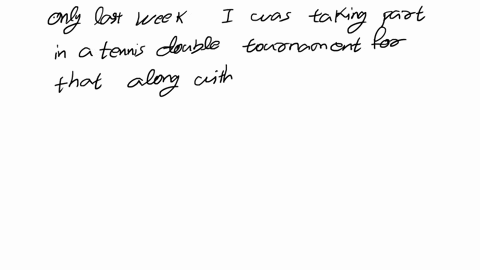 only last week I was taking part
in a tennis double tournament for
that along with